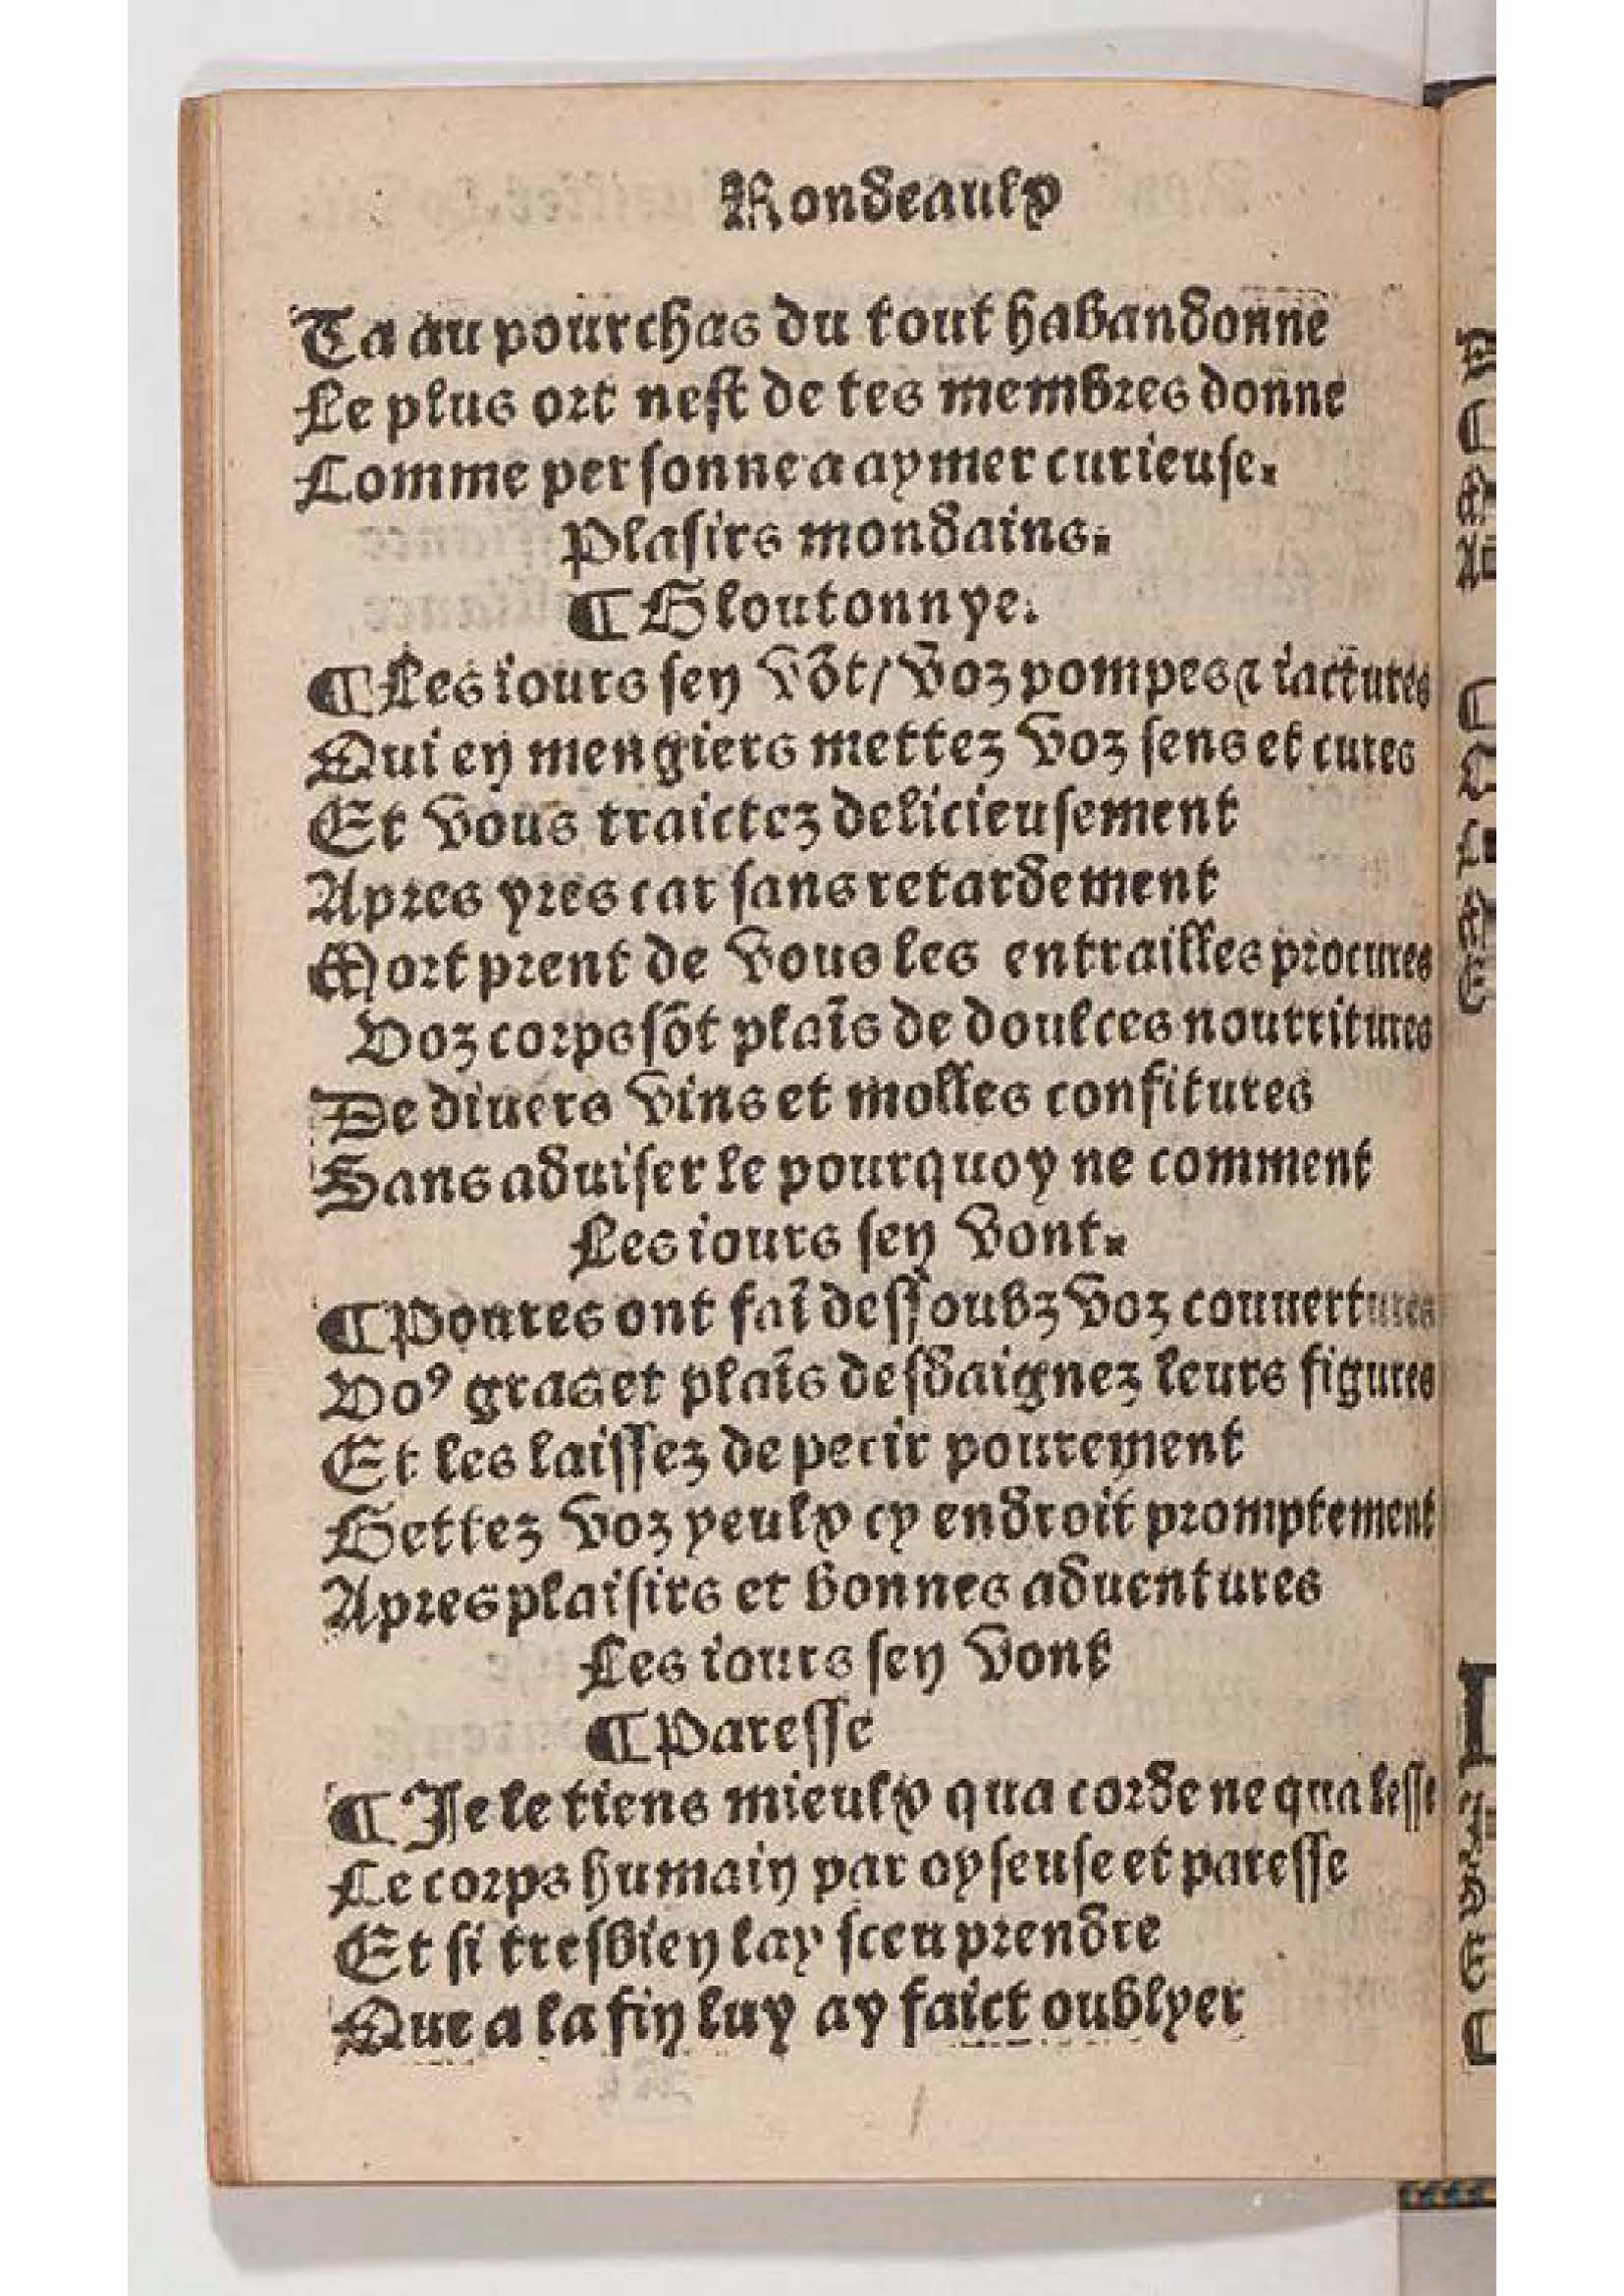 Rondeaulx
Ta au pourchas du tout habandonne
Le plus ort nest de tes membres donne
Comme personne a aymer curieuse.
Plasirs mondains.
¶ Gloutonnye.
¶ Les iours sen võt / voz pompes ⁊ iactures
Qui en mengiers mettez voz sens et cures
Et vous traictez delicieusement
Apres yres car sans retardement
Mort prent de vous les entrailles procures
Voz corps sõt plaĩs de doulces nourritures
De diuers vins et molles confitures
Sans aduiser le pourquoy ne comment
Les iours sen vont.
¶ Poures ont faĩ dessoubz voz couuertures
Voꝰ gras et plaĩs desdaignez leurs figures
Et les laissez de perir pourement
Gettez voz yeulx cy endroit promptement
Apres plaisirs et bonnes aduentures
Les iours sen vont
¶ Paresse
¶ Je le tiens mieulx qua corde ne qua lesse
Le corps humain par oyseuse et paresse
Et si tresbien lay sceu prendre
Que a la fin luy ay faict oublyer